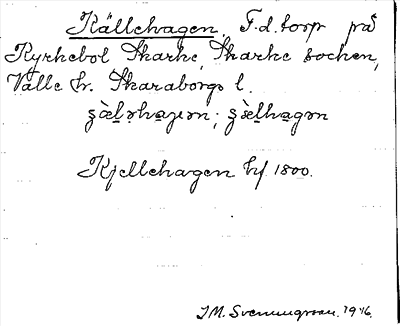 Källehagen. F.d. torp på
Kyrkebol Skarke, Skarke socken,
Valle hr. Skaraborgs l.
Kjellehagen hf 1800.
J M. Svenningsson. 1916.